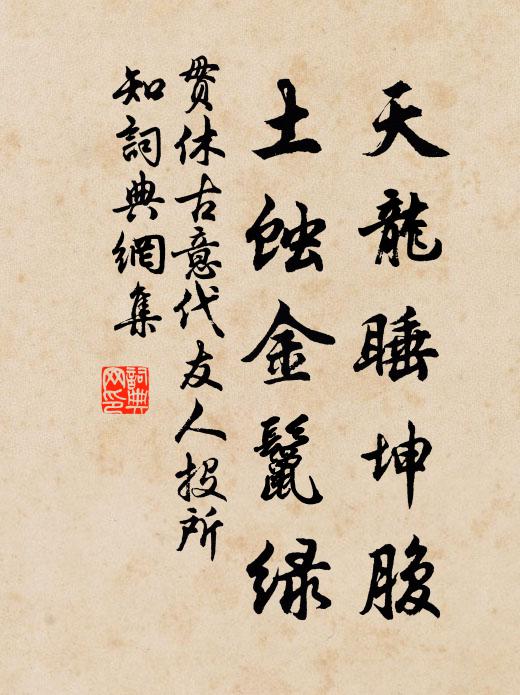 天龍睡坤腹
土蝕金鬣绿
貫休古意代友人投所
知詞典網集
詞典网印